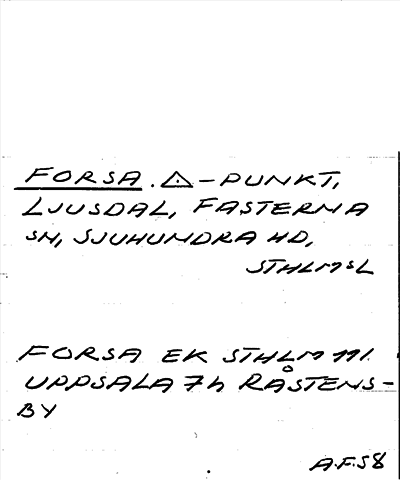 FORSA. △-PUNKT,
LJUSDAL, FASTERNA
SN, SJUHUNDRA HD,
STHLMSL
FORSA EK STHLM 111
UPPSALA 7h RÅSTENS-
BY
A.F. 58